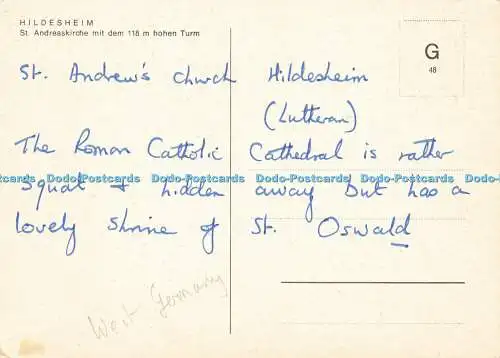 HILDESHEIM
St. Andreaskirche mit dem 118 m hohen Turm
G
48
St. Andrew's church Hildesheim
(Lutheran)
The Roman Catholic Cathedral is rather
Dodo-Postcards Dodo-Postcards Dodo-Postcards Dodo-Postcards Dodo-Postcards
squat & hidden away but has a
Dodo-Postcards Dodo-Postcards Dodo-Postcards Dodo-Postcards Dodo-Postcards
lovely shrine of St. Oswald
West Germany